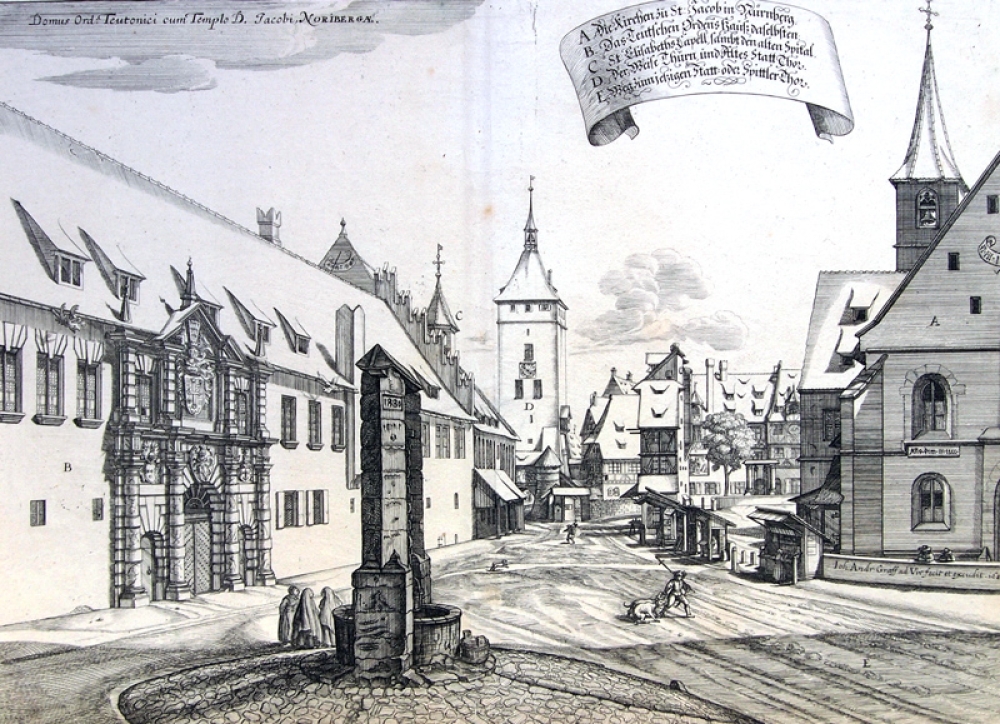 Domus Ord: Teutonici cum Templo D. Jacobi, NORIBERGÆ.
A Die Kirchen zu St Jacob in Nürnberg.
B. Das Teutschen Ordens Hauß daselbsten
C St Elisabeths Capell sambt den alten Spital
D. Der Weise Thurn und Altes Statt Thor.
E. Weg zum jezigen Statt oder Spittler Thor.
C
A
D
B
Joh. Andr. Graff ad Viv. fecit et excudit.
E